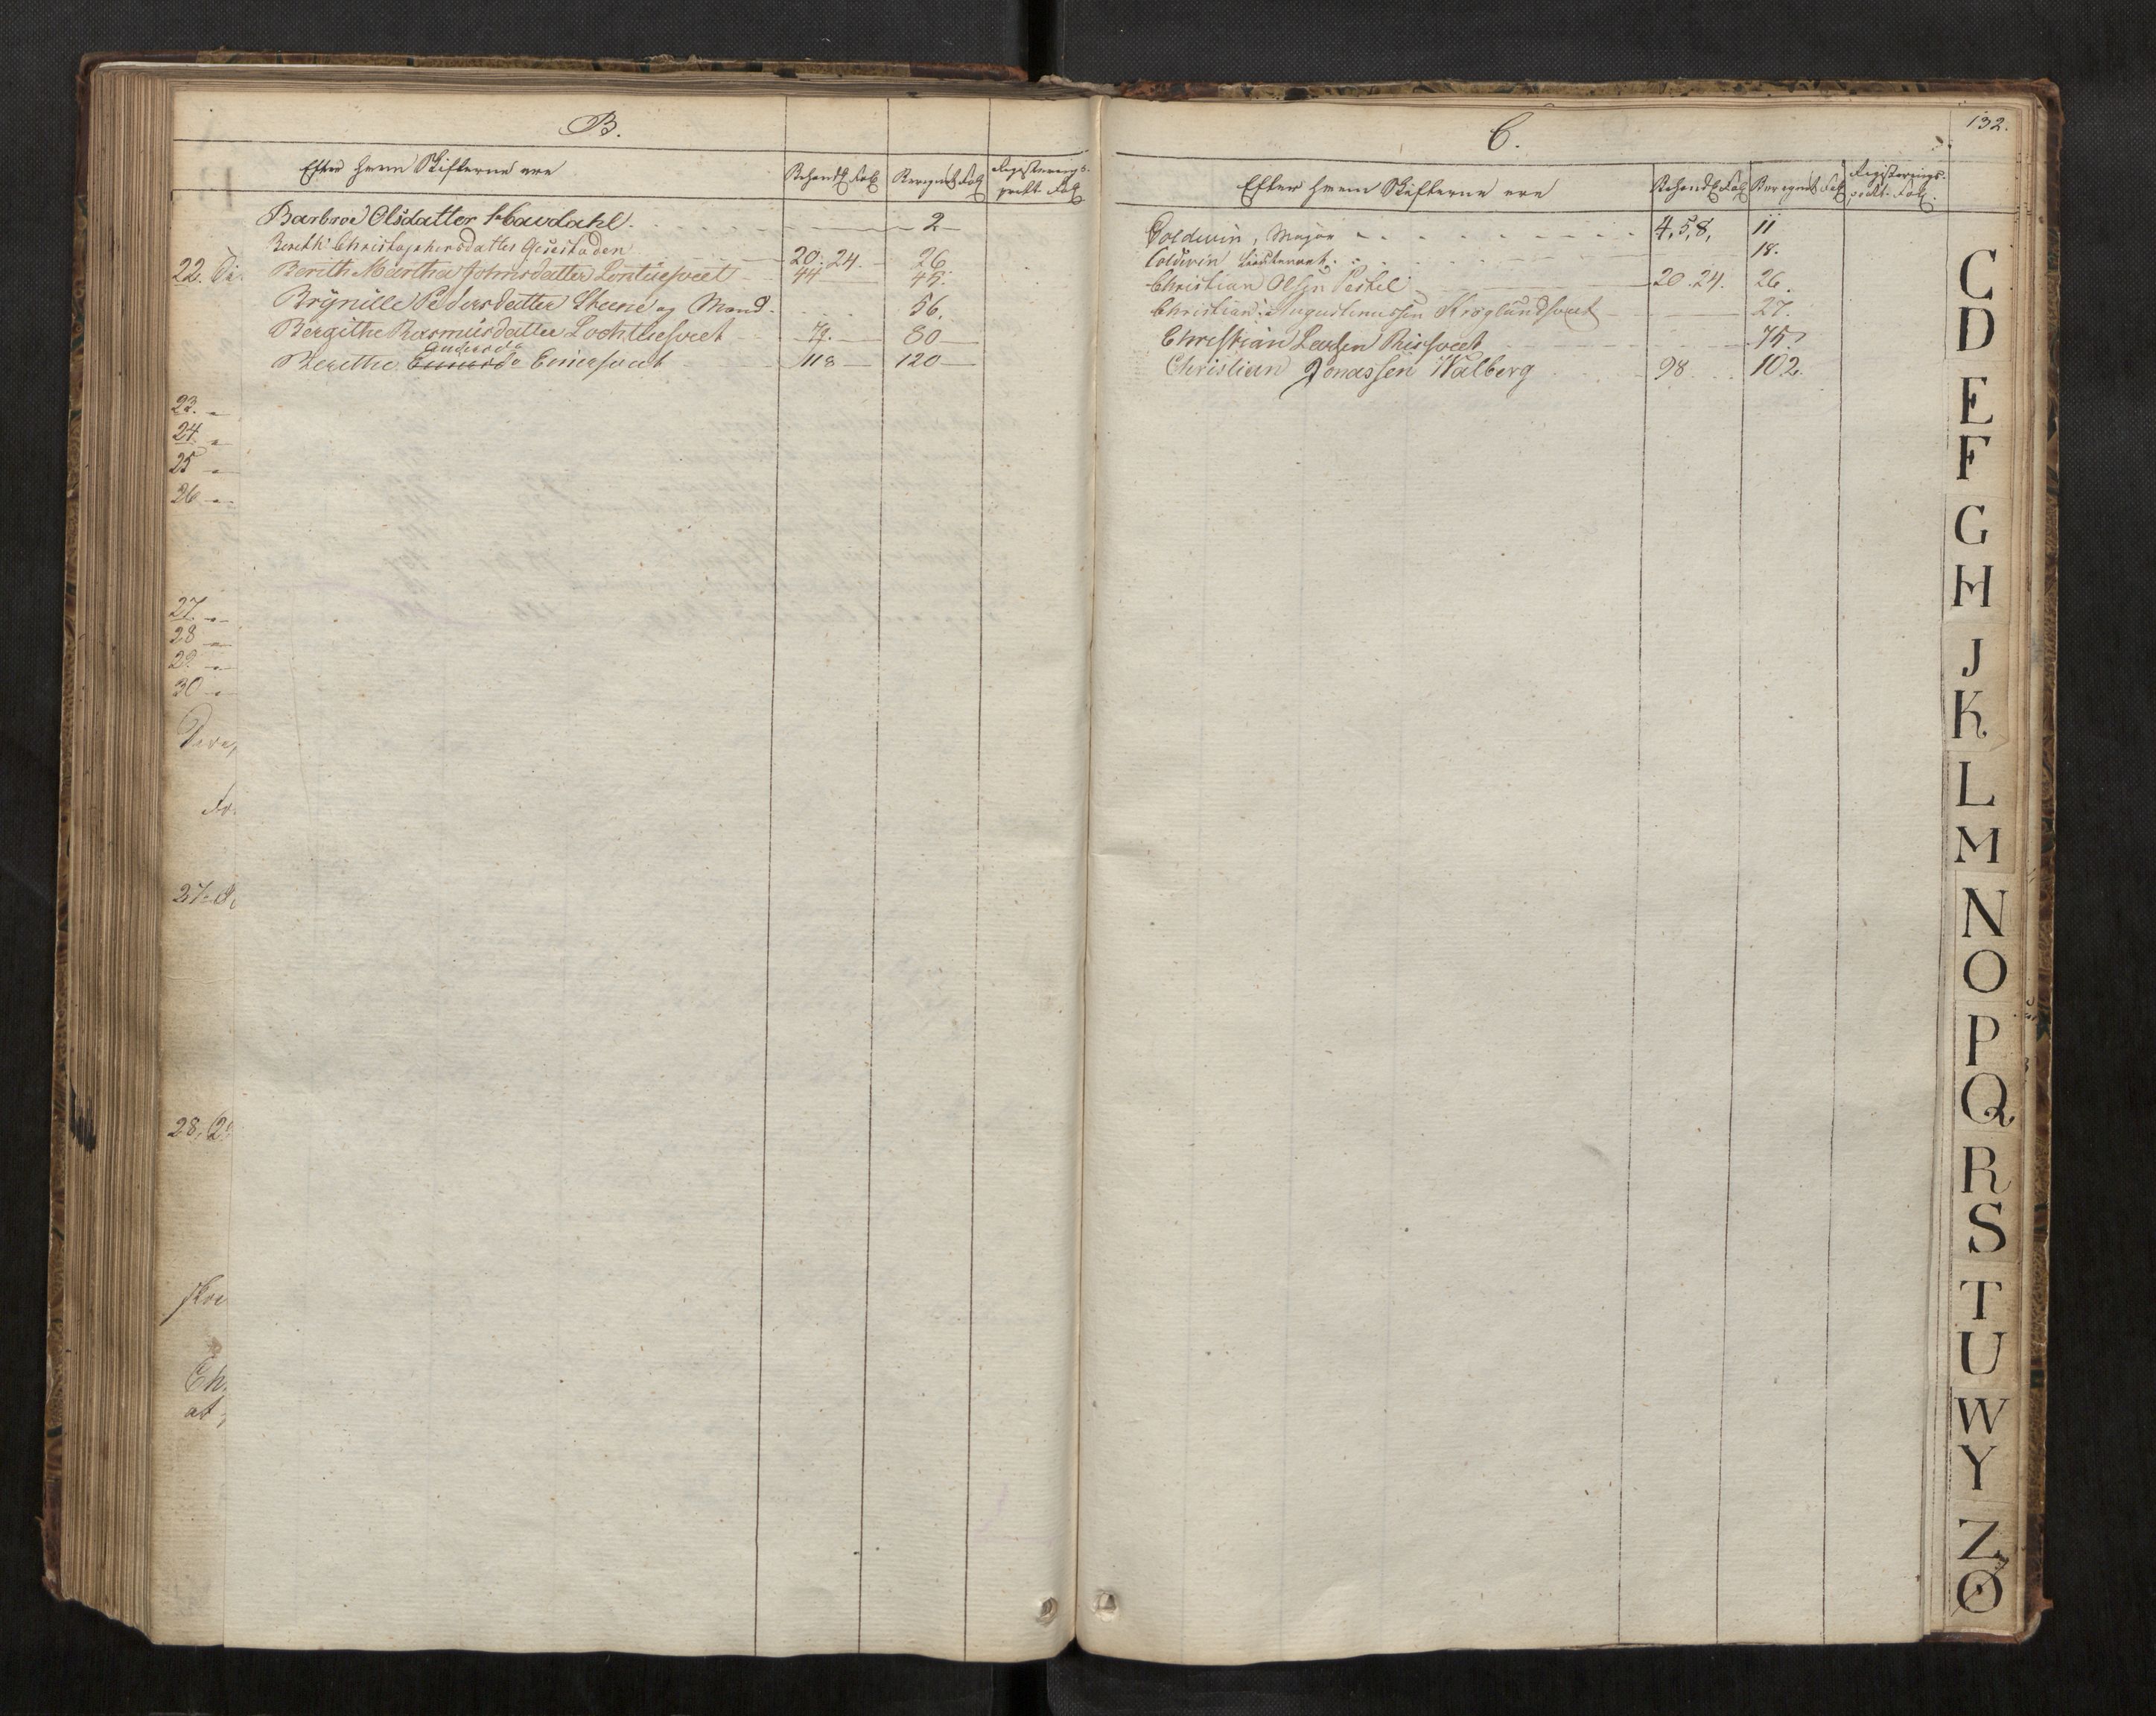 B.
Efter hvem Skifterne ere
Behandl Fol
Beregnet Fol
Registerings-
prott. Fol
Barbroe Olsdatter Havdahl. 2
Bereth Christophersdatter Gjesestaden 20. 24. 26
22. Berith Martha Johnsdatter 44 45.
Brynille Pedersdatter Steene og Mand. 56.
Bergithe Rasmusdatter 79. 80
Andersd
Berethe Einersveet 118 120
23.
24.
25
26
27
28
29
30
27.
28, 29
at
132.
C.
Efter hvem Skifterne ere
Behandl Fol
Beregnet Fol
Registerings-
prott. Fol.
Coldevin, Major 4, 5, 8, 11
Coldevin Lieutenant. 18.
Christian Olsen Pestel 20. 24. 26.
Christian Augustinussen Kroglundsveet 27.
Christian Larsen Riissveet 75.
Christian Jonassen Walberg 98 102.
C
D
E
F
G
H
J
K
L
M
N
O
P
Q
R
S
T
U
W
Y
Z
Ø